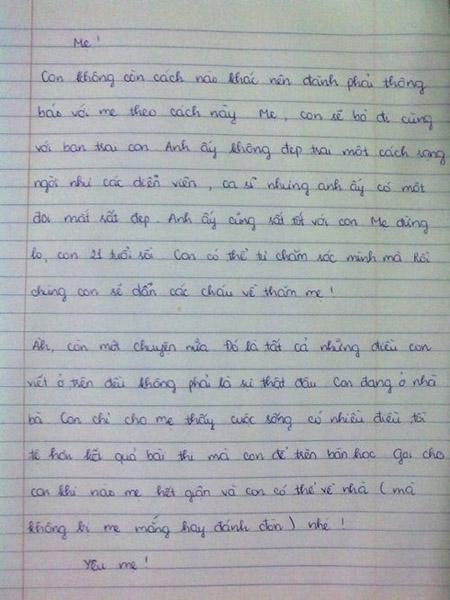 Mẹ!
Con không còn cách nào khác nên đành phải thông
báo với mẹ theo cách này. Mẹ, con sẽ bỏ đi cùng
với bạn trai con. Anh ấy không đẹp trai một cách sáng
ngời như các diễn viên, ca sĩ nhưng anh ấy có một
đôi mắt rất đẹp. Anh ấy cũng rất tốt với con. Mẹ đừng
lo, con 21 tuổi rồi. Con có thể tự chăm sóc mình mà. Rồi
chúng con sẽ dẫn các cháu về thăm mẹ!
Ah, còn một chuyện nữa. Đó là tất cả những điều con
viết ở trên đều không phải là sự thật đâu. Con đang ở nhà
bà. Con chỉ cho mẹ thấy cuộc sống có nhiều điều tồi
tệ hơn kết quả bài thi mà con để trên bàn học. Gọi cho
con khi nào mẹ hết giận và con có thể về nhà (mà
không bị mẹ mắng hay đánh đòn) nhé!
Yêu mẹ!